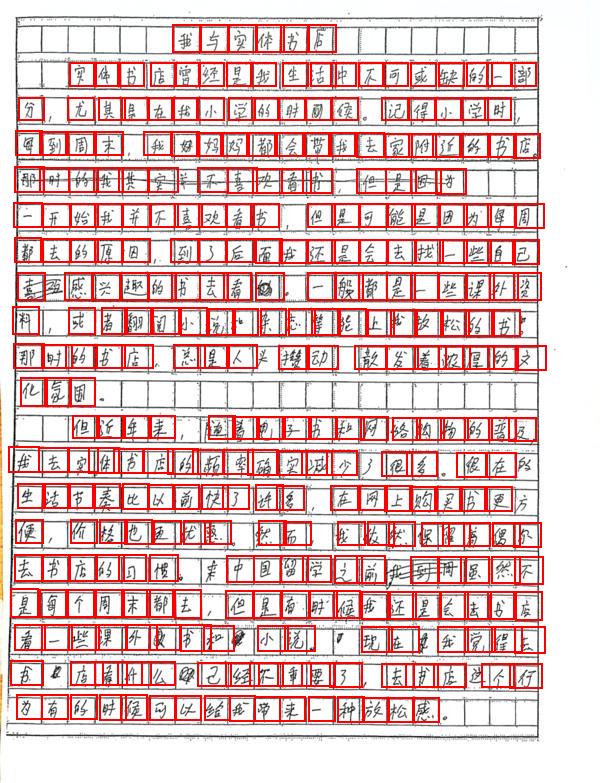 我与实体书店
实体书店曾经是我生活中不可或缺的一部
分，尤其是在我小学的时间候。记得小学时，
每到周末，我妈妈妈都会带我去家附近的书店。
那时的我其实并不喜欢看书，但是因为
一开始我并不喜欢看书，但是可能是因为每周
都去的原因，到了后面我还是会去找一些自己
感兴趣的书去看。一般都是一些课外资
料，或者翻阅小说杂志等能上我放松的书。
那时的书店，总是人头攒动 散发着浓厚的文
化氛围。
但近年来，随着电子书和网络购物的普及，
我去实体书店的频率确实减少了很多。现在的
生活节奏比以前快了许多，在网上购买书更方
便，价格也更优惠。然而 我依然保留着偶尔
去书店的习惯。来中国留学之前我到周虽然不
是每个周末都去，但是有时候我还是会去书店
看一些课外书和小说。现在我觉得去
书店看什么已经不重要了，去书店这个行
为有的时候可以给我带来一种放松感。